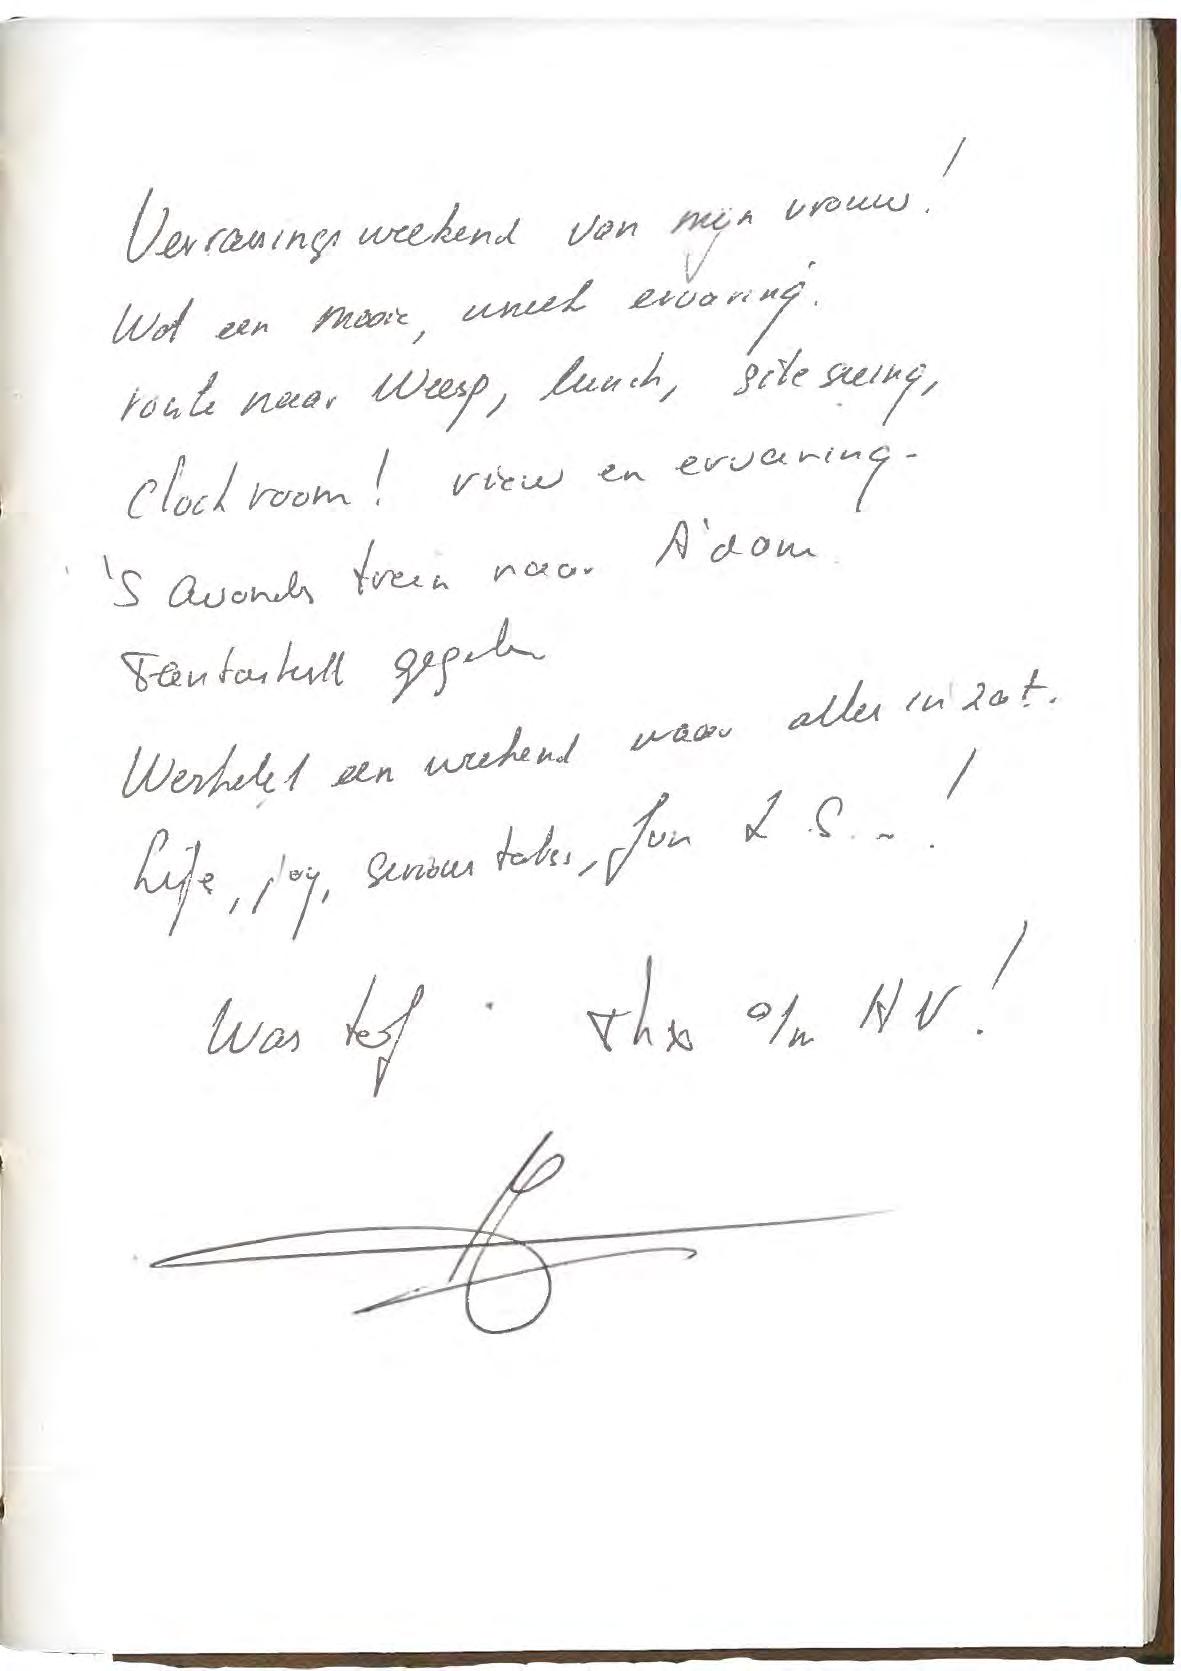 Verrassings weekend van mijn vrouw!
Wat een mooie, uniek ervaring.
route naar Weesp, lunch, site seeing,
Clock room! view en ervaring.
's avonds trein naar A'dam
Fantastisch gegeten
Werkelijk een weekend waar alles in zat.
Life, joy, serious talks, fun & S...!
Was tof. Thx